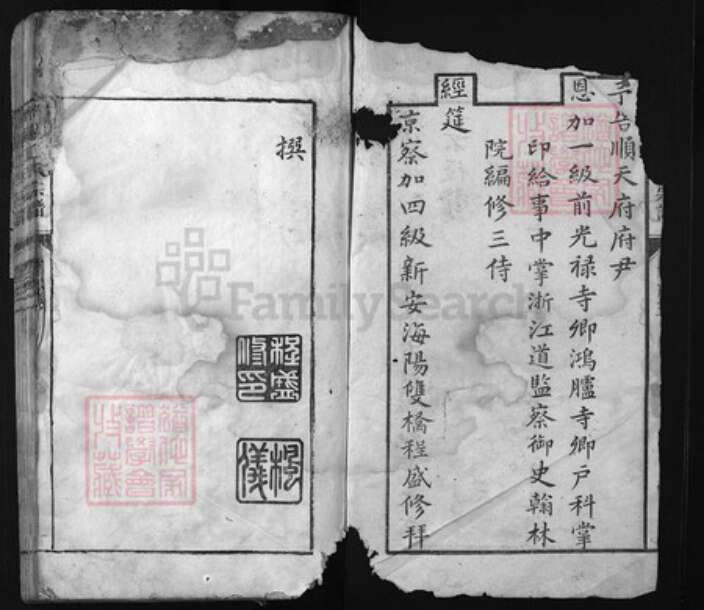 予告順天府府尹
恩加一級前光禄寺卿鴻臚寺卿戶科掌
印給事中掌浙江道監察御史翰林
院編修三侍
經筵
京察加四級新安海陽雙橋程盛修拜
撰
程盛修印
楓儀
FamilySearch